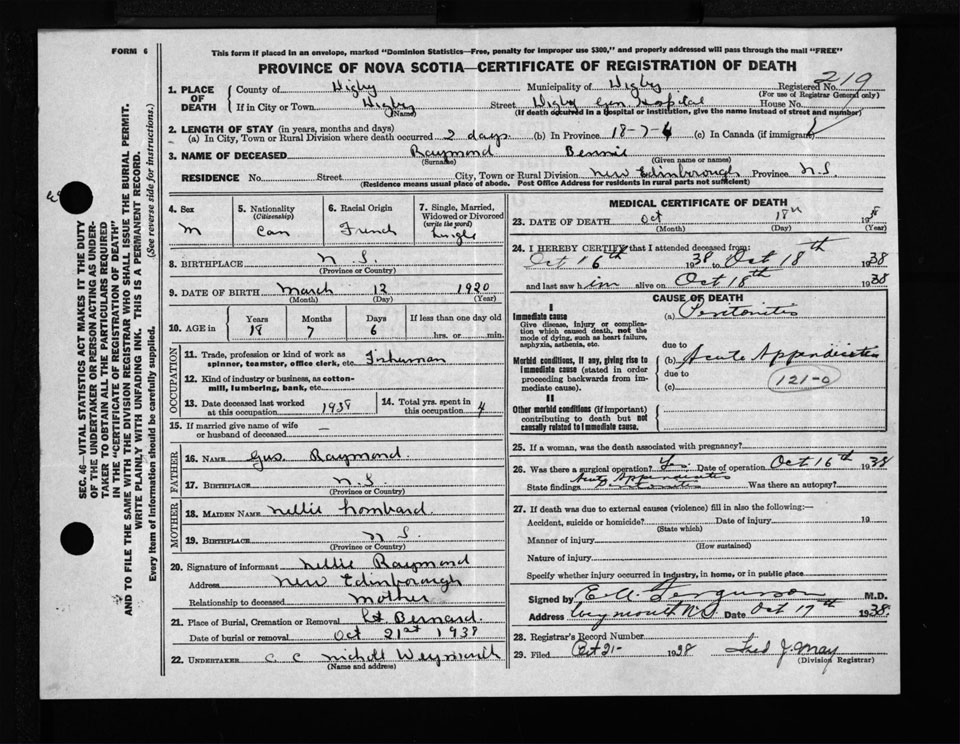 FORM 6
This form if placed in an envelope, marked "Dominion Statistics—Free, penalty for improper use $300," and properly addressed will pass through the mail "FREE"
PROVINCE OF NOVA SCOTIA—CERTIFICATE OF REGISTRATION OF DEATH
1. PLACE OF DEATH
County of Digby Municipality of Digby Registered No. 219
(For use of Registrar General only)
If in City or Town Digby Street Digby Gen. Hospital House No.
(Name) (If death occurred in a hospital or institution, give the name instead of street and number)
2. LENGTH OF STAY (in years, months and days)
(a) In City, Town or Rural Division where death occurred 2 days (b) In Province 18-7-6 (c) In Canada (if immigrant)
3. NAME OF DECEASED Raymond Bennie
(Surname) (Given name or names)
RESIDENCE No. Street City, Town or Rural Division New Edinborough Province N.S
(Residence means usual place of abode. Post Office Address for residents in rural parts not sufficient)
4. Sex
M
5. Nationality
(Citizenship)
Can
6. Racial Origin
French
7. Single, Married, Widowed or Divorced
(write the word)
Single
8. BIRTHPLACE N.S.
(Province or Country)
9. DATE OF BIRTH March 12 1920
(Month) (Day) (Year)
10. AGE in
Years Months Days If less than one day old
18 7 6 hrs. or min.
OCCUPATION
11. Trade, profession or kind of work as spinner, teamster, office clerk, etc. Fisherman
12. Kind of industry or business, as cotton-mill, lumbering, bank, etc.
13. Date deceased last worked at this occupation 1938
14. Total yrs. spent in this occupation 4
15. If married give name of wife or husband of deceased —
FATHER
16. Name Gus. Raymond.
17. Birthplace N.S.
(Province or Country)
MOTHER
18. Maiden Name Nellie Lombard
19. Birthplace N S.
(Province or Country)
20. Signature of informant Nellie Raymond
Address New Edinborough
Relationship to deceased Mother
21. Place of Burial, Cremation or Removal St. Bernard.
Date of burial or removal Oct 21st 1938
22. Undertaker C C Nicholl Weymouth
(Name and address)
MEDICAL CERTIFICATE OF DEATH
23. DATE OF DEATH Oct 18th 1938
(Month) (Day) (Year)
24. I HEREBY CERTIFY that I attended deceased from:
Oct 16th 1938 to Oct 18th 1938
and last saw him alive on Oct 18th 1938
CAUSE OF DEATH
I
Immediate cause
Give disease, injury or complication which caused death, not the mode of dying, such as heart failure, asphyxia, asthenia, etc.
(a) Peritonitis
Morbid conditions, if any, giving rise to immediate cause (stated in order proceeding backwards from immediate cause).
due to
(b) Acute Appendicitis
due to
(c) 121-0
II
Other morbid conditions (if important) contributing to death but not causally related to immediate cause.
25. If a woman, was the death associated with pregnancy?
26. Was there a surgical operation? Yes. Date of operation Oct 16th 1938
State findings Acute Appendicitis Was there an autopsy?
27. If death was due to external causes (violence) fill in also the following:—
Accident, suicide or homicide? Date of injury 19
(State which)
Manner of injury
(How sustained)
Nature of injury
Specify whether injury occurred in industry, in home, or in public place
Signed by E. A. Ferguson M.D.
Address Weymouth N.S. Date Oct 17th 1938.
28. Registrar's Record Number
29. Filed Oct 21- 1938 Fred J. May
(Division Registrar)
SEC. 46—VITAL STATISTICS ACT MAKES IT THE DUTY
OF THE UNDERTAKER OR PERSON ACTING AS UNDER-
TAKER TO OBTAIN ALL THE PARTICULARS REQUIRED
IN THE "CERTIFICATE OF REGISTRATION OF DEATH"
AND TO FILE THE SAME WITH THE DIVISION REGISTRAR WHO SHALL ISSUE THE BURIAL PERMIT.
WRITE PLAINLY WITH UNFADING INK. THIS IS A PERMANENT RECORD.
Every item of information should be carefully supplied. (See reverse side for instructions.)